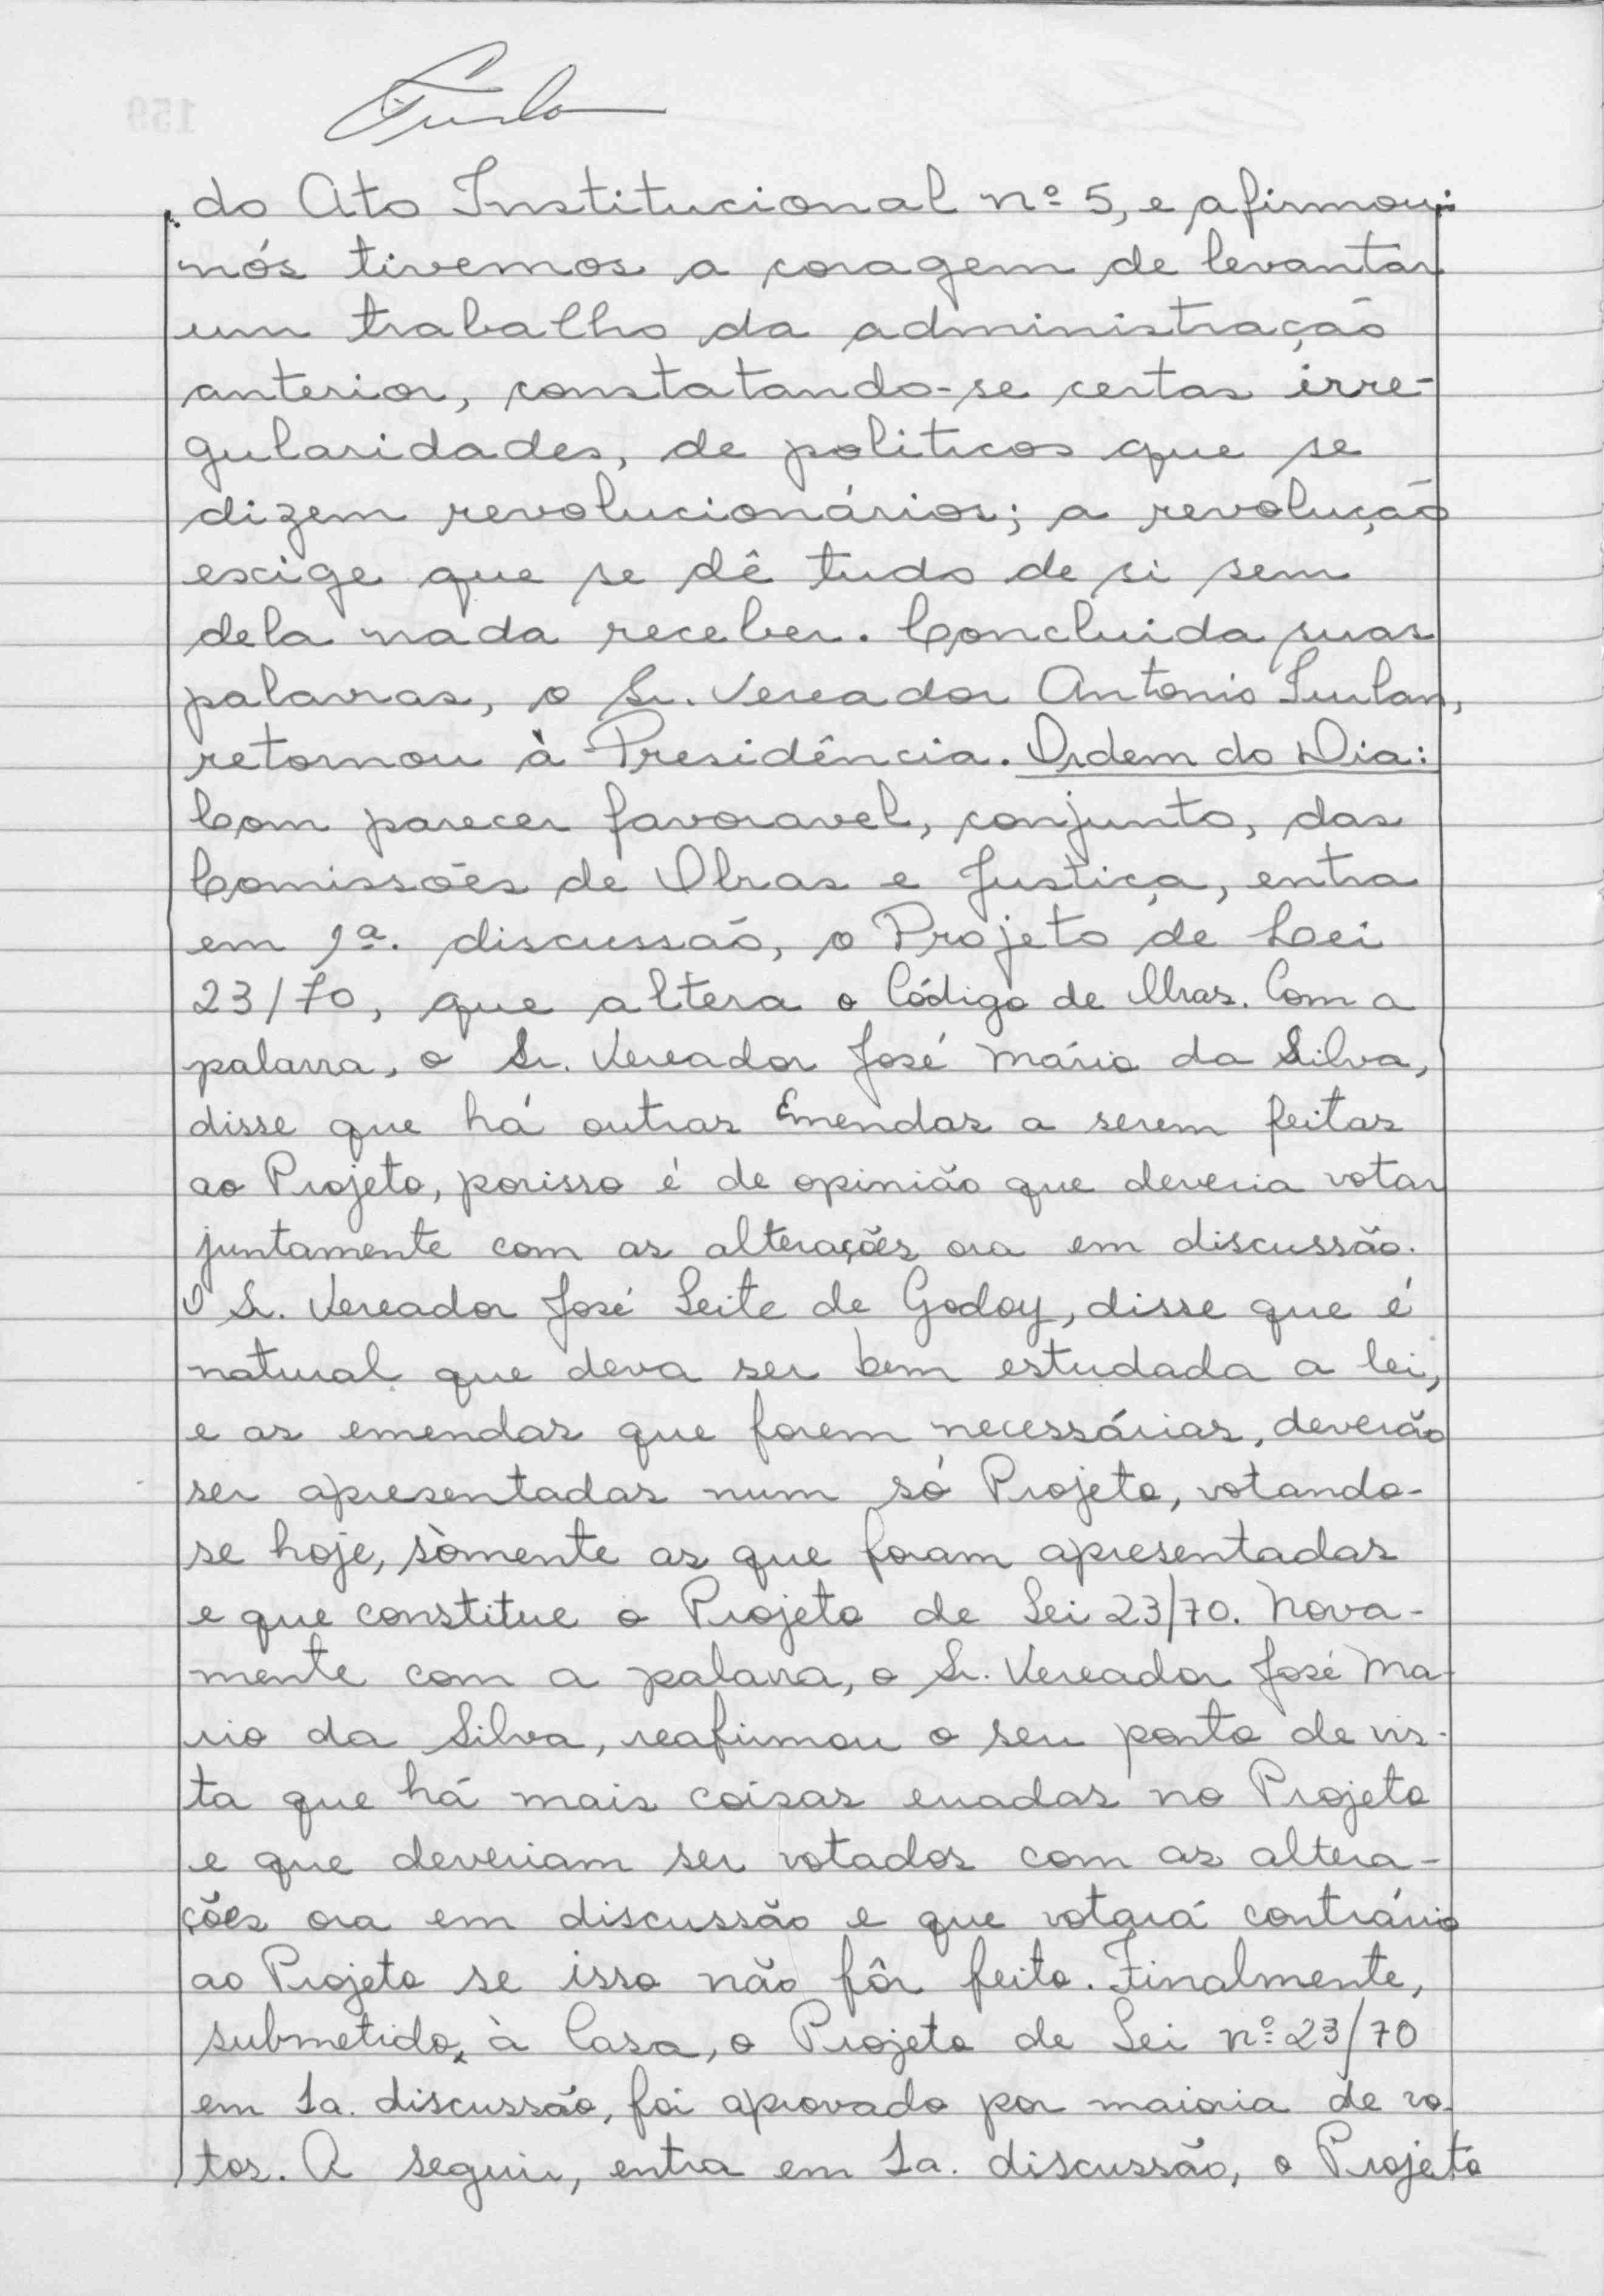 do Ato Institucional nº 5, e afirmou:
nós tivemos a coragem de levantar
um trabalho da administração
anterior, constatando-se certas irre-
gularidades, de politicos que se
dizem revolucionários; a revolução
exige que se dê tudo de si sem
dela nada receber. Concluida suas
palavras, o Sr. Vereador Antonio Furlan,
retornou à Presidência. Ordem do Dia:
Com parecer favoravel, conjunto, das
Comissões de Obras e Justiça, entra
em 1ª. discussão, o Projeto de Lei
23/70, que altera o Código de Obras. Com a
palavra, o Sr. Vereador José Mário da Silva,
disse que há outras Emendas a serem feitas
ao Projeto, porisso é de opinião que deveria votar
juntamente com as alterações ora em discussão.
O Sr. Vereador José Leite de Godoy, disse que é
natural que deva ser bem estudada a lei,
e as emendas que forem necessárias, deverão
ser apresentadas num só Projeto, votando-
se hoje, sòmente as que foram apresentadas
e que constitue o Projeto de Lei 23/70. Nova-
mente com a palavra, o Sr. Vereador José Ma-
rio da Silva, reafirmou o seu ponto de vis-
ta que há mais coisas erradas no Projeto
e que deveriam ser votados com as altera-
ções ora em discussão e que votará contrário
ao Projeto se isso não fôr feito. Finalmente,
submetido, à Casa, o Projeto de Lei nº 23/70
em 1a. discussão, foi aprovado por maioria de vo-
tos. A seguir, entra em 1a. discussão, o Projeto